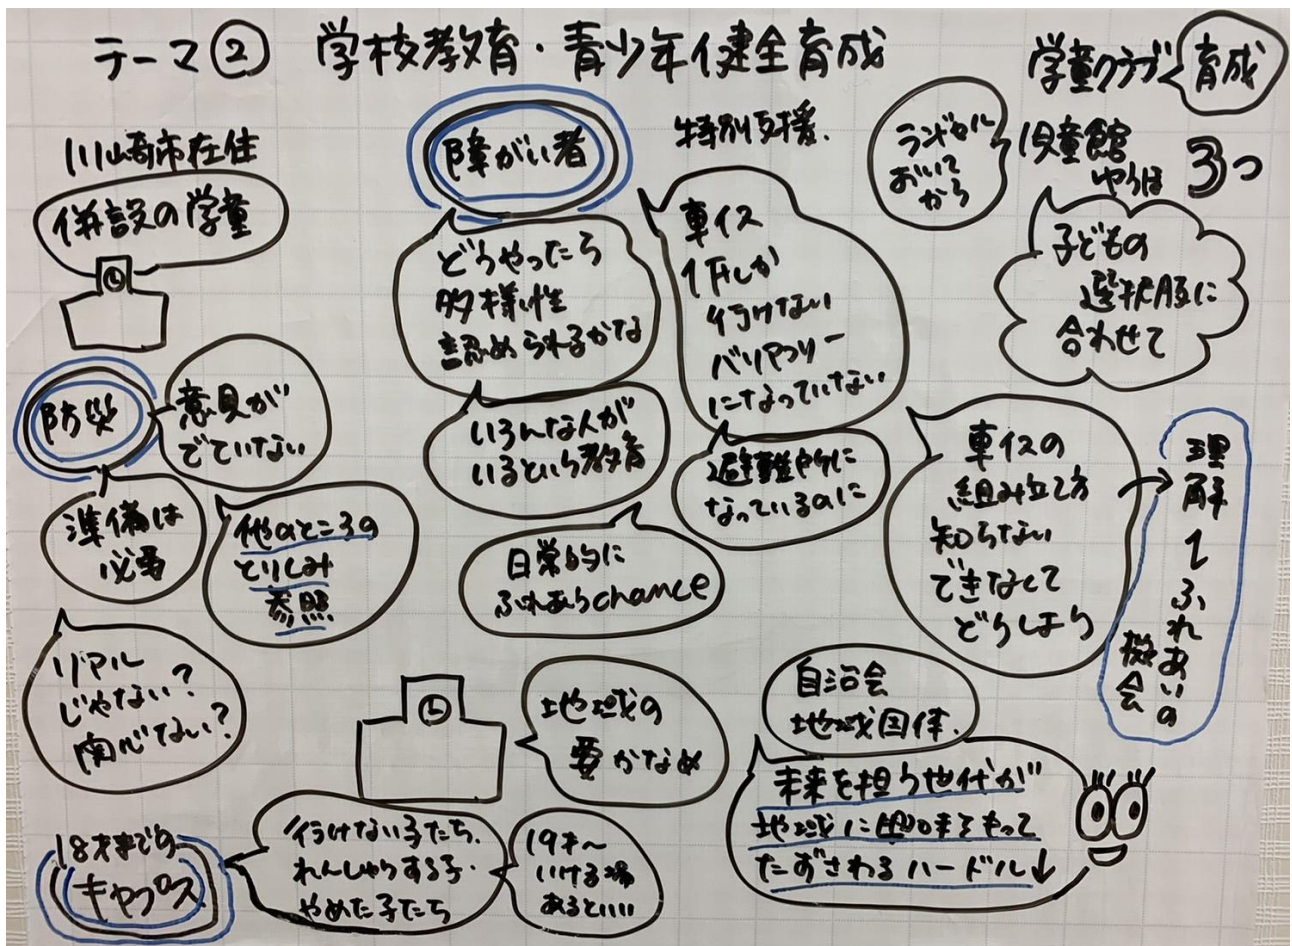 テーマ② 学校教育・青少年健全育成
学童クラブ
育成
川崎市在住
併設の学童
障がい者
特別支援.
ランドセル
おいて
から
児童館
3つ
子どもの
選択肢に
合わせて
どうやったら
多様性
認められるかな
車イス
1Fしか
行けない
バリアフリー
になっていない
防災
意見が
でていない
いろんな人が
いるという教育
避難所に
なっているのに
車イスの
組み立て方
知らない
できなくて
どうしよう
理解
ふれあいの
機会
準備は
必要
他のところの
とりくみ
参照
日常的に
ふれあうchance
リアル
じゃない?
関心ない?
地域の
要かなめ
自治会
地域団体.
未来を担う世代が
地域に興味をもって
たずさわるハードル↓
18才までの
キャプス
行けない子たち.
れんしゅうする子.
やめた子たち
19才〜
いける場
あるといい